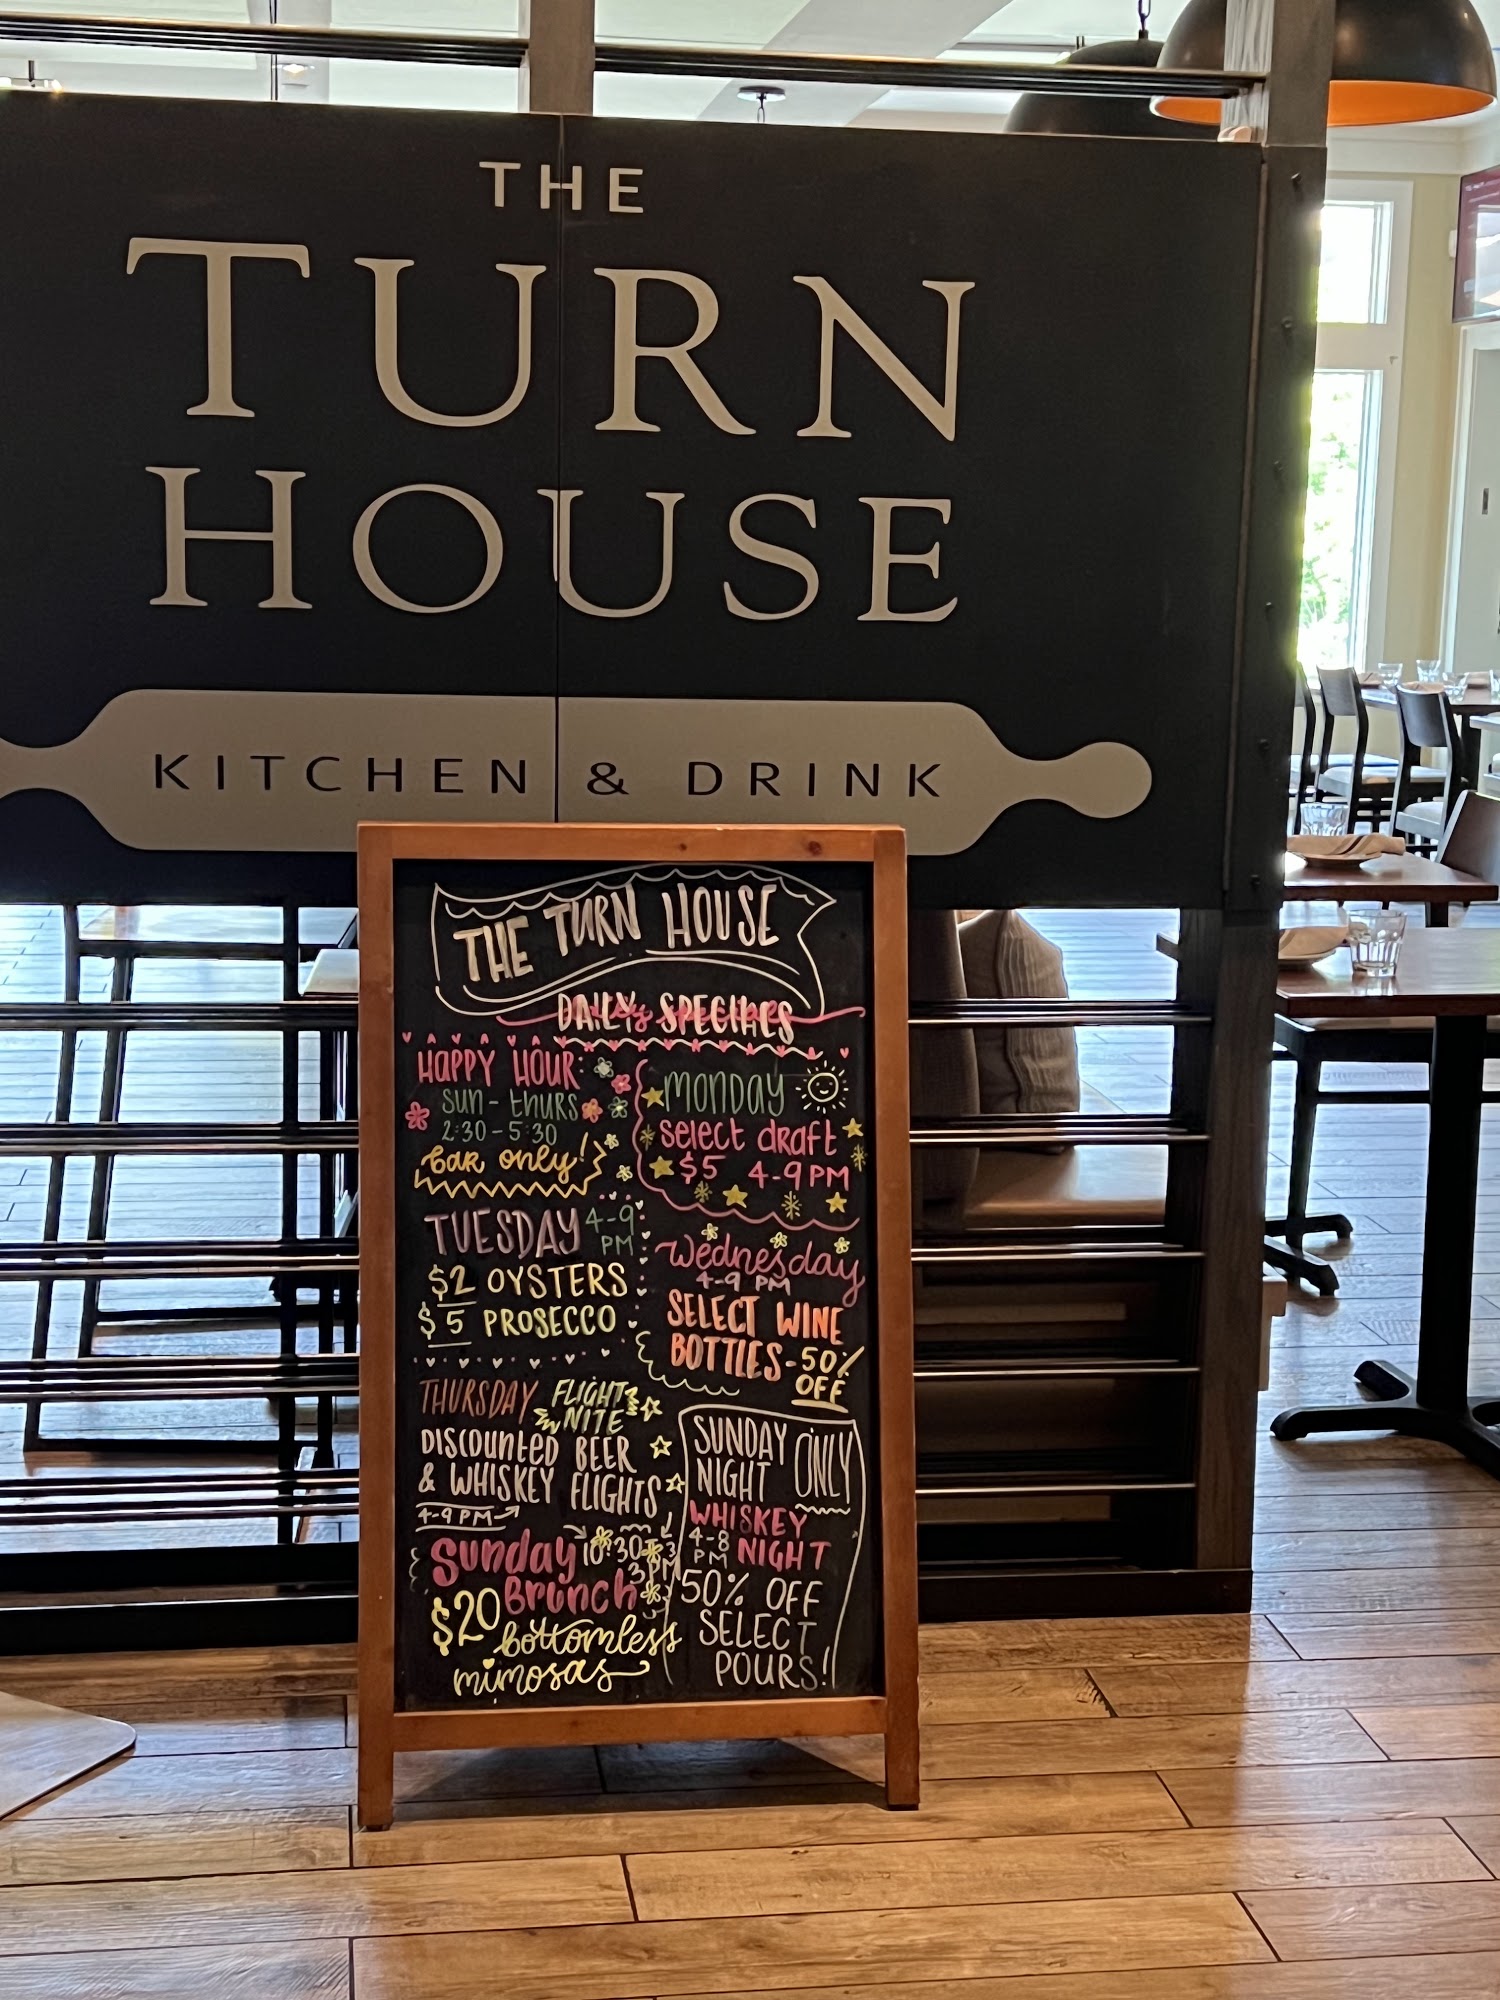 THE
TURN
HOUSE
KITCHEN & DRINK
THE TURN HOUSE
DAILY SPECIALS
HAPPY HOUR:
SUN - THURS
2:30 - 5:30
bar only!
MONDAY
select draft
$5 4-9PM
TUESDAY 4-9 PM
$2 OYSTERS
$5 PROSECCO
Wednesday
4-9 PM
SELECT WINE
BOTTLES - 50%
OFF
THURSDAY FLIGHT NITE
DISCOUNTED BEER
& WHISKEY FLIGHTS
4-9PM
Sunday 10:30
Brunch 3PM
$20 bottomless
mimosas
SUNDAY
NIGHT ONLY
WHISKEY
4-8 PM NIGHT
50% OFF
SELECT
POURS!